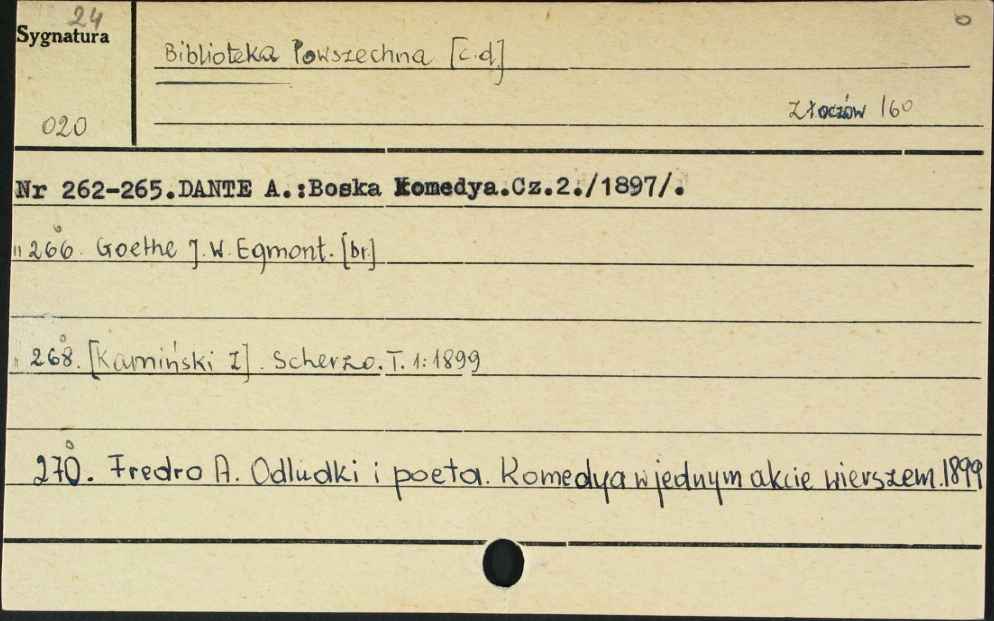 24
Sygnatura
Biblioteka Powszechna [c.d.]
Złoczów 160
020
Nr 262-265.DANTE A.:Boska Komedya.Cz.2./1897/.
" 266. Goethe J. W. Egmont. [br.]
" 268. [Kamiński Z]. Scherzo. T. 1: 1899
270. Fredro A. Odludki i poeta. Komedya w jednym akcie wierszem. 1899